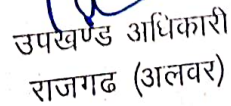 उपखण्ड अधिकारी
राजगढ (अलवर)